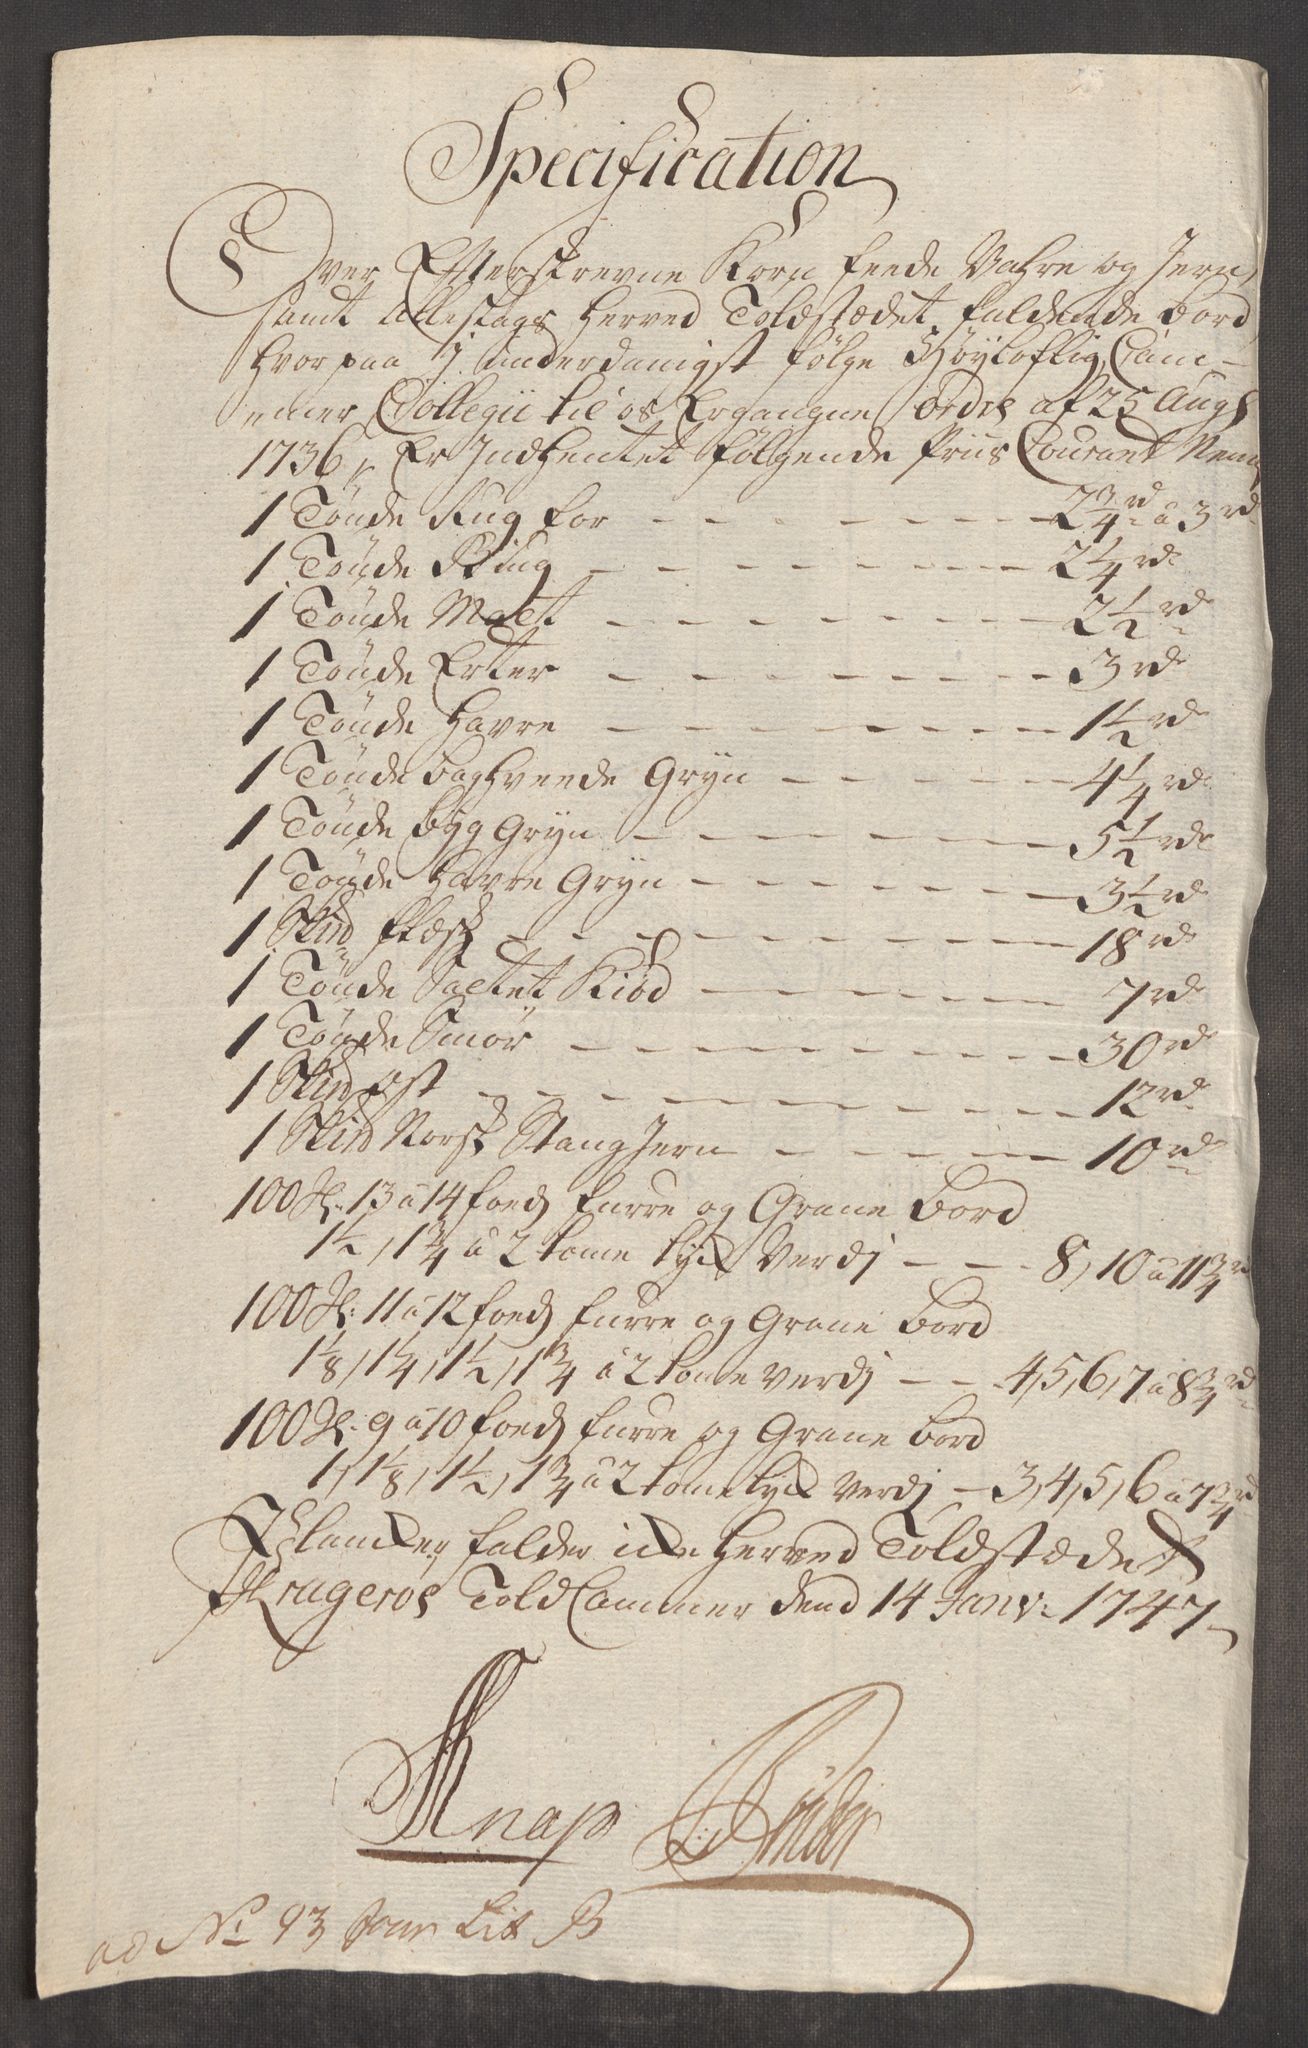 Specification
Over Efterskrevne Korn feede Vahre og Jern,
samt Alleslags herved Toldstædet faldende bord
hvorpaa J underdanigst følge Høyloflig Cam-
mer Collegii til os Ergangne ordre af 25 Augs
1736, Er Jndhentet følgende Priis Courant Neml
1 Tønde Rug for - - - - - - 2 3/4 rd a 3 rd
1 Tønde - - - - - - 2 1/4 rd
1 Tønde Malt - - - - - - 2 1/2 rd
1 Tønde Erter - - - - - - 3 rd
1 Tønde havre - - - - - - 1 1/2 rd
1 Tønde boghveede Gryn - - - - - 4 1/4 rd
1 Tønde byg Gryn - - - - - - 5 1/2 rd
1 Tønde havre Gryn - - - - - - 3 1/2 rd
1 Skpd flesk - - - - - - 18 rd
1 Tønde Saltet Kiød - - - - - 7 rd
1 Tønde Smør - - - - - - 30 rd
1 Skpd ost - - - - - - 12 rd
1 Skpd Norsk Stang Jern - - - - - 10 rd
100 st: 13 a 14 foeds furre og Grane bord
1 1/2, 1 3/4 a 2 tome tyk Verdj - - - 8, 10 a 11 3/4 rd
100 st: 11 a 12 foeds furre og Grane bord
1 1/8, 1 1/4, 1 1/2, 1 3/4 a 2 tome verdj - - - 4, 5, 6, 7 a 8 3/4 rd
100 st: 9 a 10 foeds furre og Grane bord
1, 1 1/8, 1 1/2, 1 3/4 a 2 tome tyk Verdj - 3, 4, 5, 6 a 7 3/4 rd
Plancker falder icke herved Toldstædet
Kragerøe Told Cammer dend 14 Janv: 1747
Knap
ad No 93 Jour Lit B